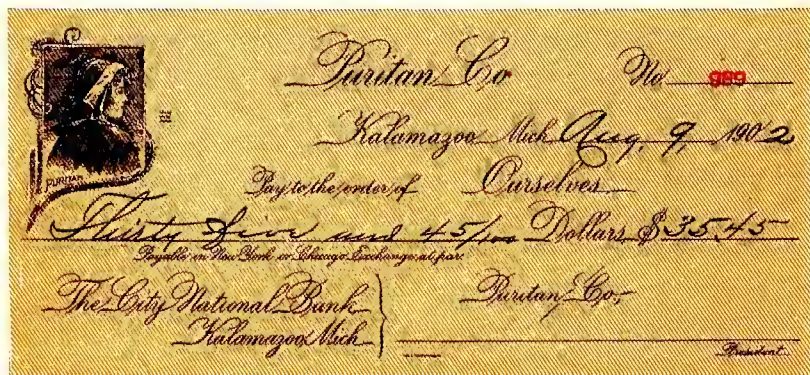 Puritan Co No 989
Kalamazoo Mich Aug. 9, 1902
PURITAN
Pay to the order of Ourselves
Thirty five and 45/100 Dollars $35.45
Payable in New York or Chicago Exchange at par
The City National Bank Puritan Co.
Kalamazoo Mich
President